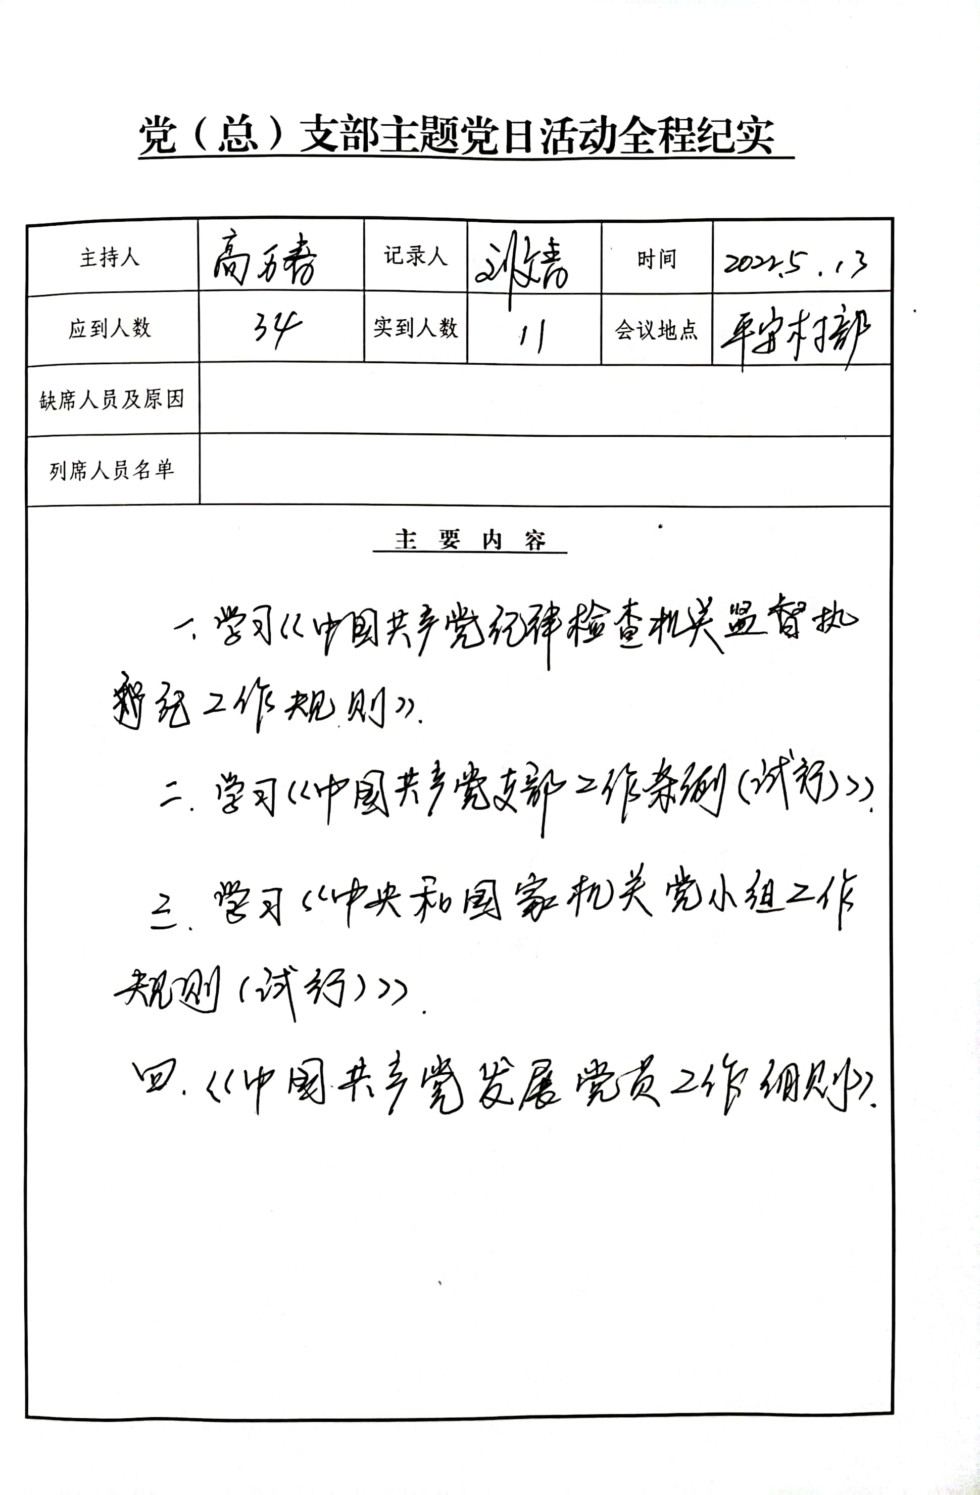 党（总）支部主题党日活动全程纪实
主持人 高万春 记录人 刘文清 时间 2022.5.13
应到人数 34 实到人数 11 会议地点 平安村部
缺席人员及原因
列席人员名单
主要内容
一、学习《中国共产党纪律检查机关监督执
纪工作规则》.
二.学习《中国共产党支部工作条例(试行)》.
三.学习《中央和国家机关党小组工作
规则(试行)》.
四.《中国共产党发展党员工作细则》.